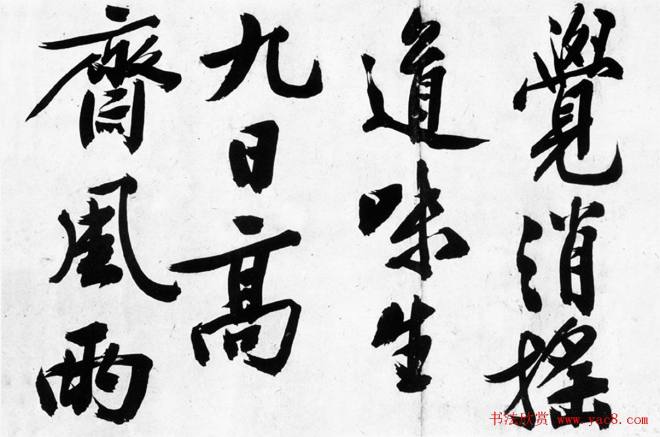 覺消搖
道味生
九日高
齋風雨
书法欣赏 www.yac8.com